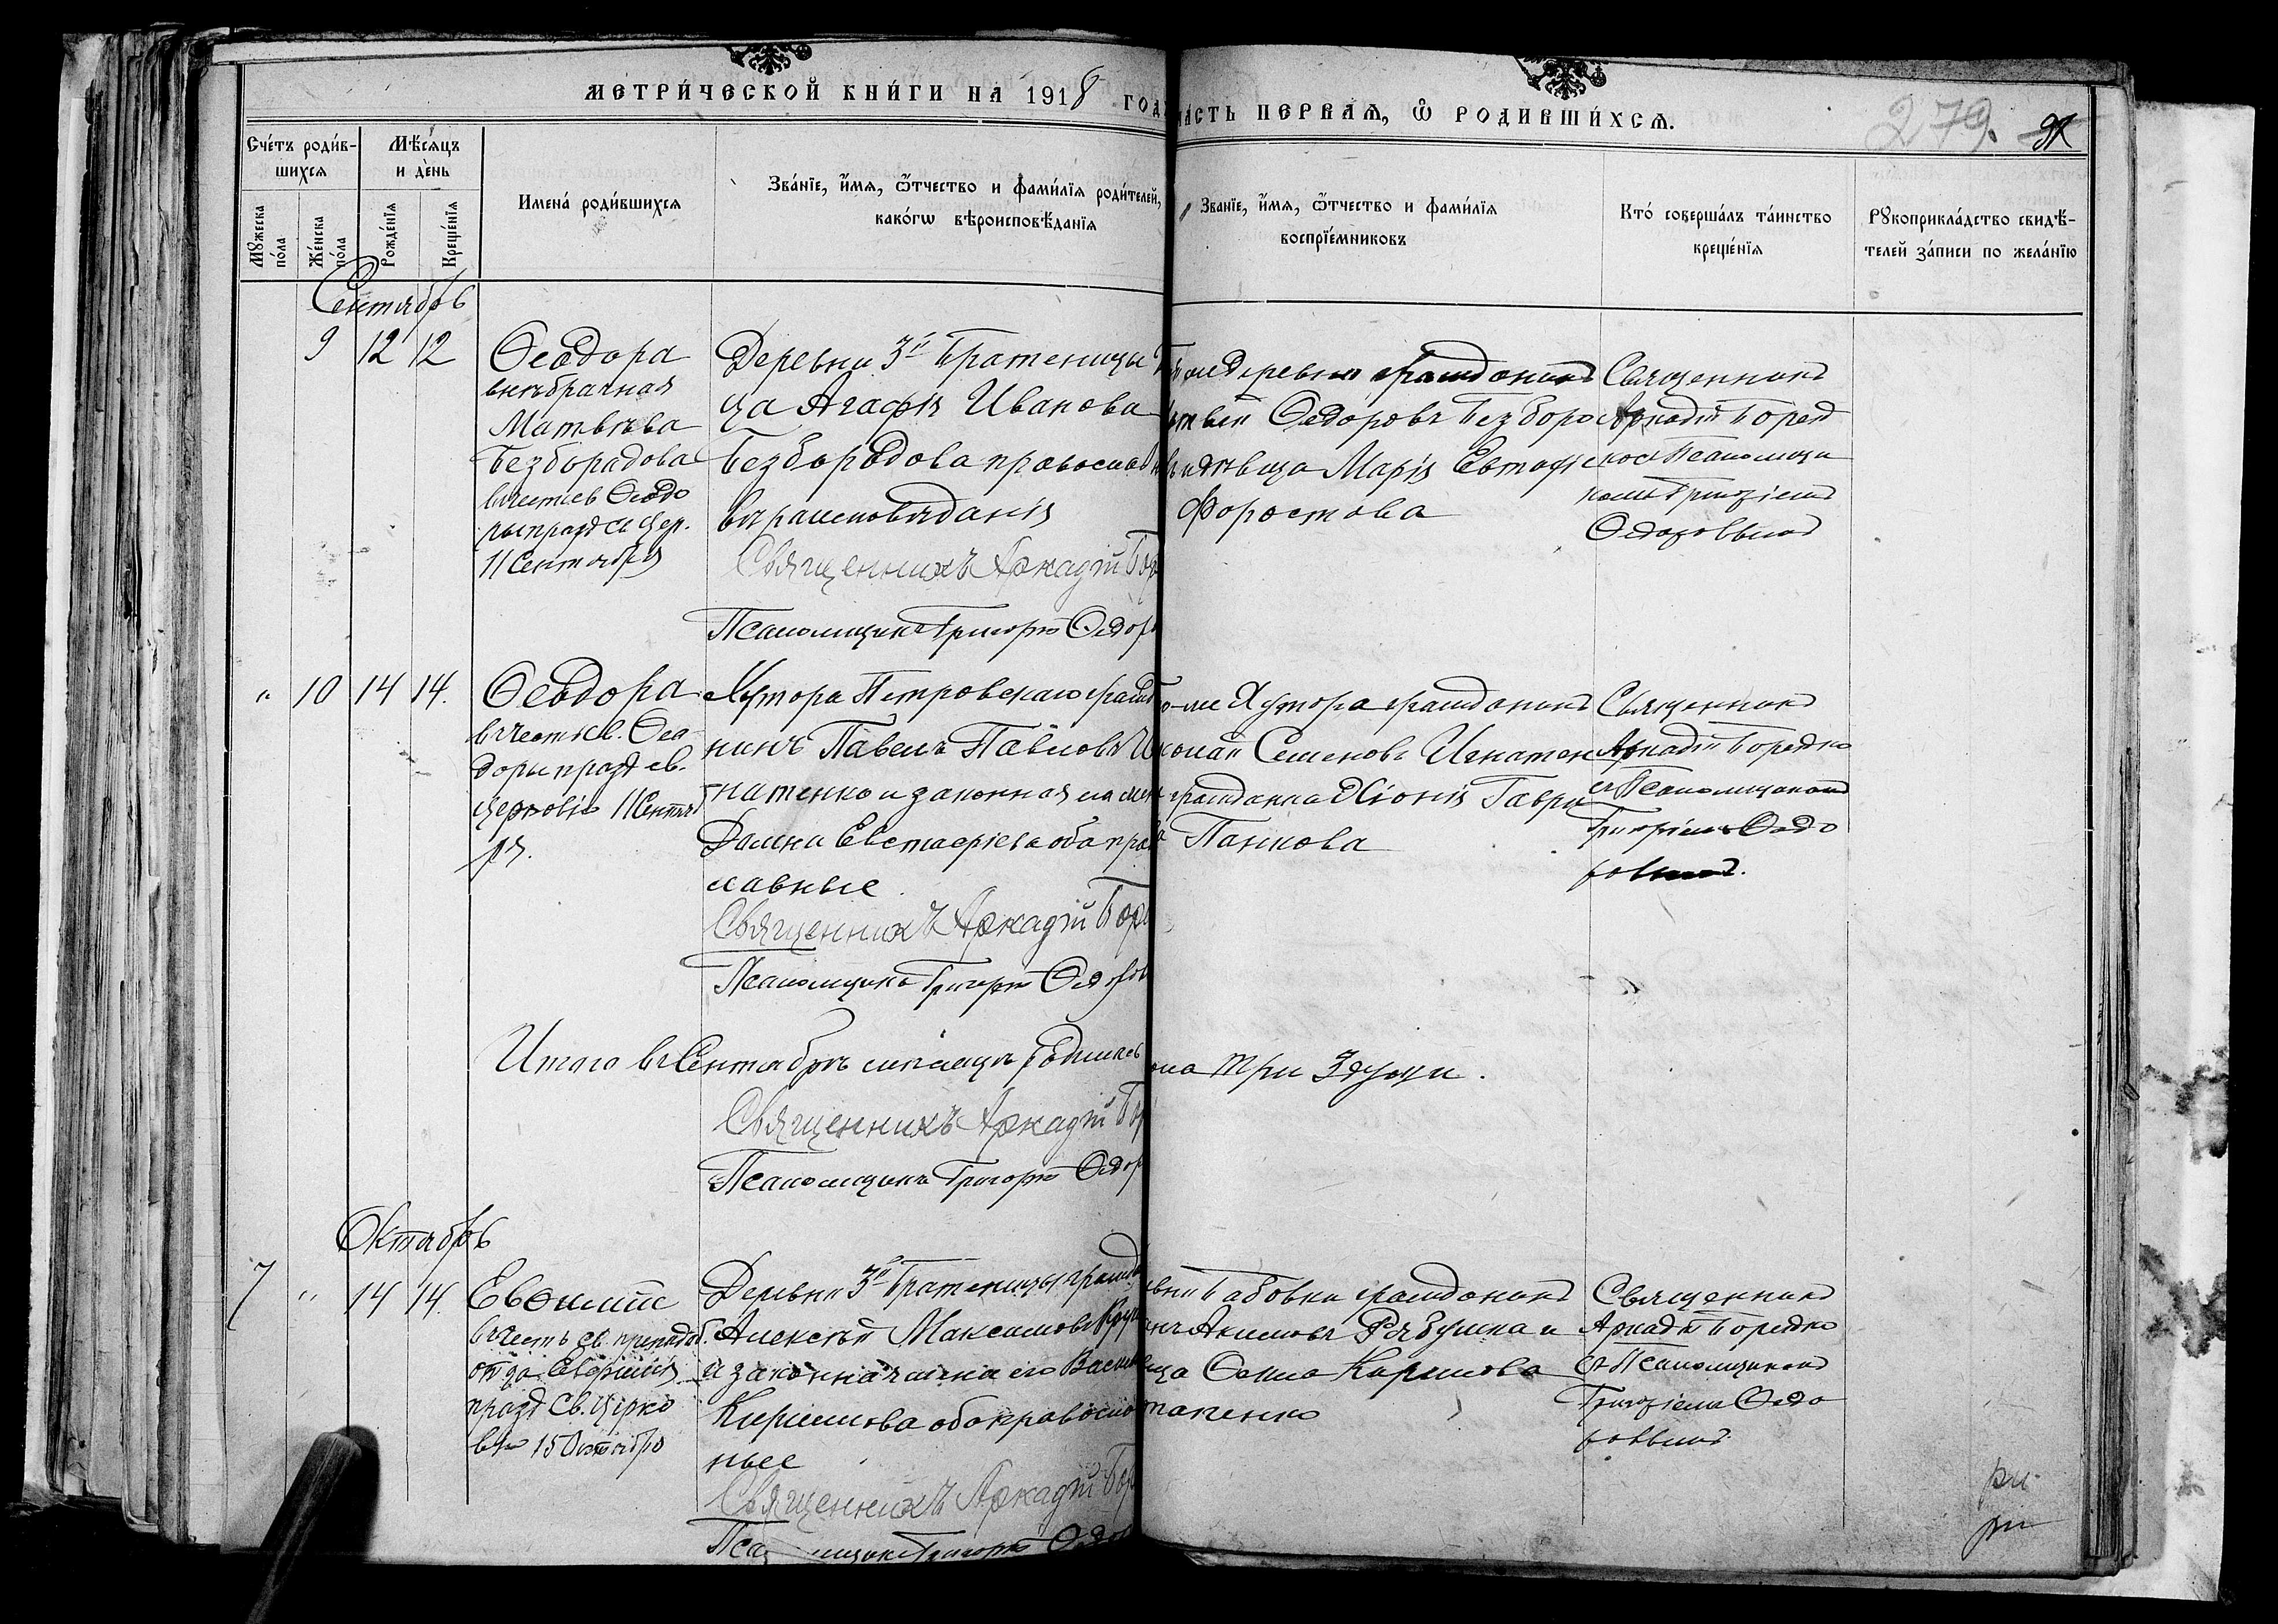 МЕТРИ́ЧЕСКОЙ КНИ́ГИ НА 1918 ГОД
ЧАСТЬ ПЕРВАЯ, Ѡ РОДИВШИ́ХСЯ.
279.
Счéтъ роди́в-
шихся
Мѣ́сяцъ
и дéнь
Мꙋ́жеска
по́ла
Жéнска
по́ла
Рождéнїя
Крещéнїя
Именá роди́вшихся
Звáнїе, и́мя, ѻ҆́тчество и фами́лїя роди́телей,
како́гѡ вѣроисповѣ́данїя
Звáнїе, и́мя, ѻ҆́тчество и фами́лїя
воспрїéмниковъ
Ктó совершáлъ тáинство
крещéнїя
Рꙋкоприклáдство свидѣ́-
телей зáписи по желáнїю
Сентябрь
9 12 12
Ѳеодора
внѣбрачная
Матвѣева
Безбородова
въ честь Ѳеодо
ры празд св цер.
11 Сентября
Деревни 3й Братеницы
ца Агафія Иванова
Безбородова православ
вѣроисповѣданія
Священникъ Аркадій Бор
Псаломщикъ Григорій Ѳедор
той же деревни гражданинъ
Ѳедоровъ Безборо
дѣвица Марія Евтафі
Форостова
Священникъ
Аркадій Боред
съ Псаломщи
комъ Григоріемъ
Ѳедоровымъ
" 10 14 14.
Ѳеодора
въ честь св. Ѳео
доры празд св.
церковію 11 Сентяб
ря.
Хутора Петровскаго гражд
нинъ Павелъ Павловъ И
гнатенко и законная его жен
Домна Евстафіева оба прав
лавные
Священникъ Аркадій Бор
Псаломщикъ Григорій Ѳедоров
го-же Хутора гражданинъ
Семеновъ Игнатен
гражданка Хіонія Гаври
Панкова
Священникъ
Аркадій Боредко
съ Псаломщикомъ
Григоріемъ Ѳедо
ровымъ.
Итого въ Сентябрѣ мѣсяцѣ родилось
три 3 души.
Священникъ Аркадій Бор
Псаломщикъ Григорій Ѳедор
Октябрь
7 " 14 14.
Евѳимій
въ честь св. преподоб.
отца Евфимія
празд Св. Церко
вію 15 Октября
Деревни 3й Братеницы гражда
Алексѣй Максимовъ
и законная жена его Васили
Кирилова оба правосла
ные
Священникъ Аркадій Бор
Псаломщикъ Григорій Ѳедо
евни Бабовки гражданинъ
Акимовъ Рябушка и
Ѳекла Карпова
Священникъ
Аркадій Боредко
съ Псаломщикомъ
Григоріемъ Ѳедо
ровымъ